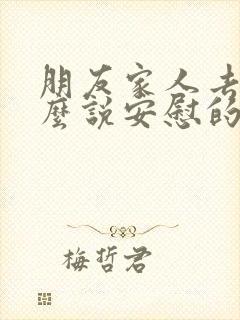 朋友家人去
麽說安慰的
梅哲君